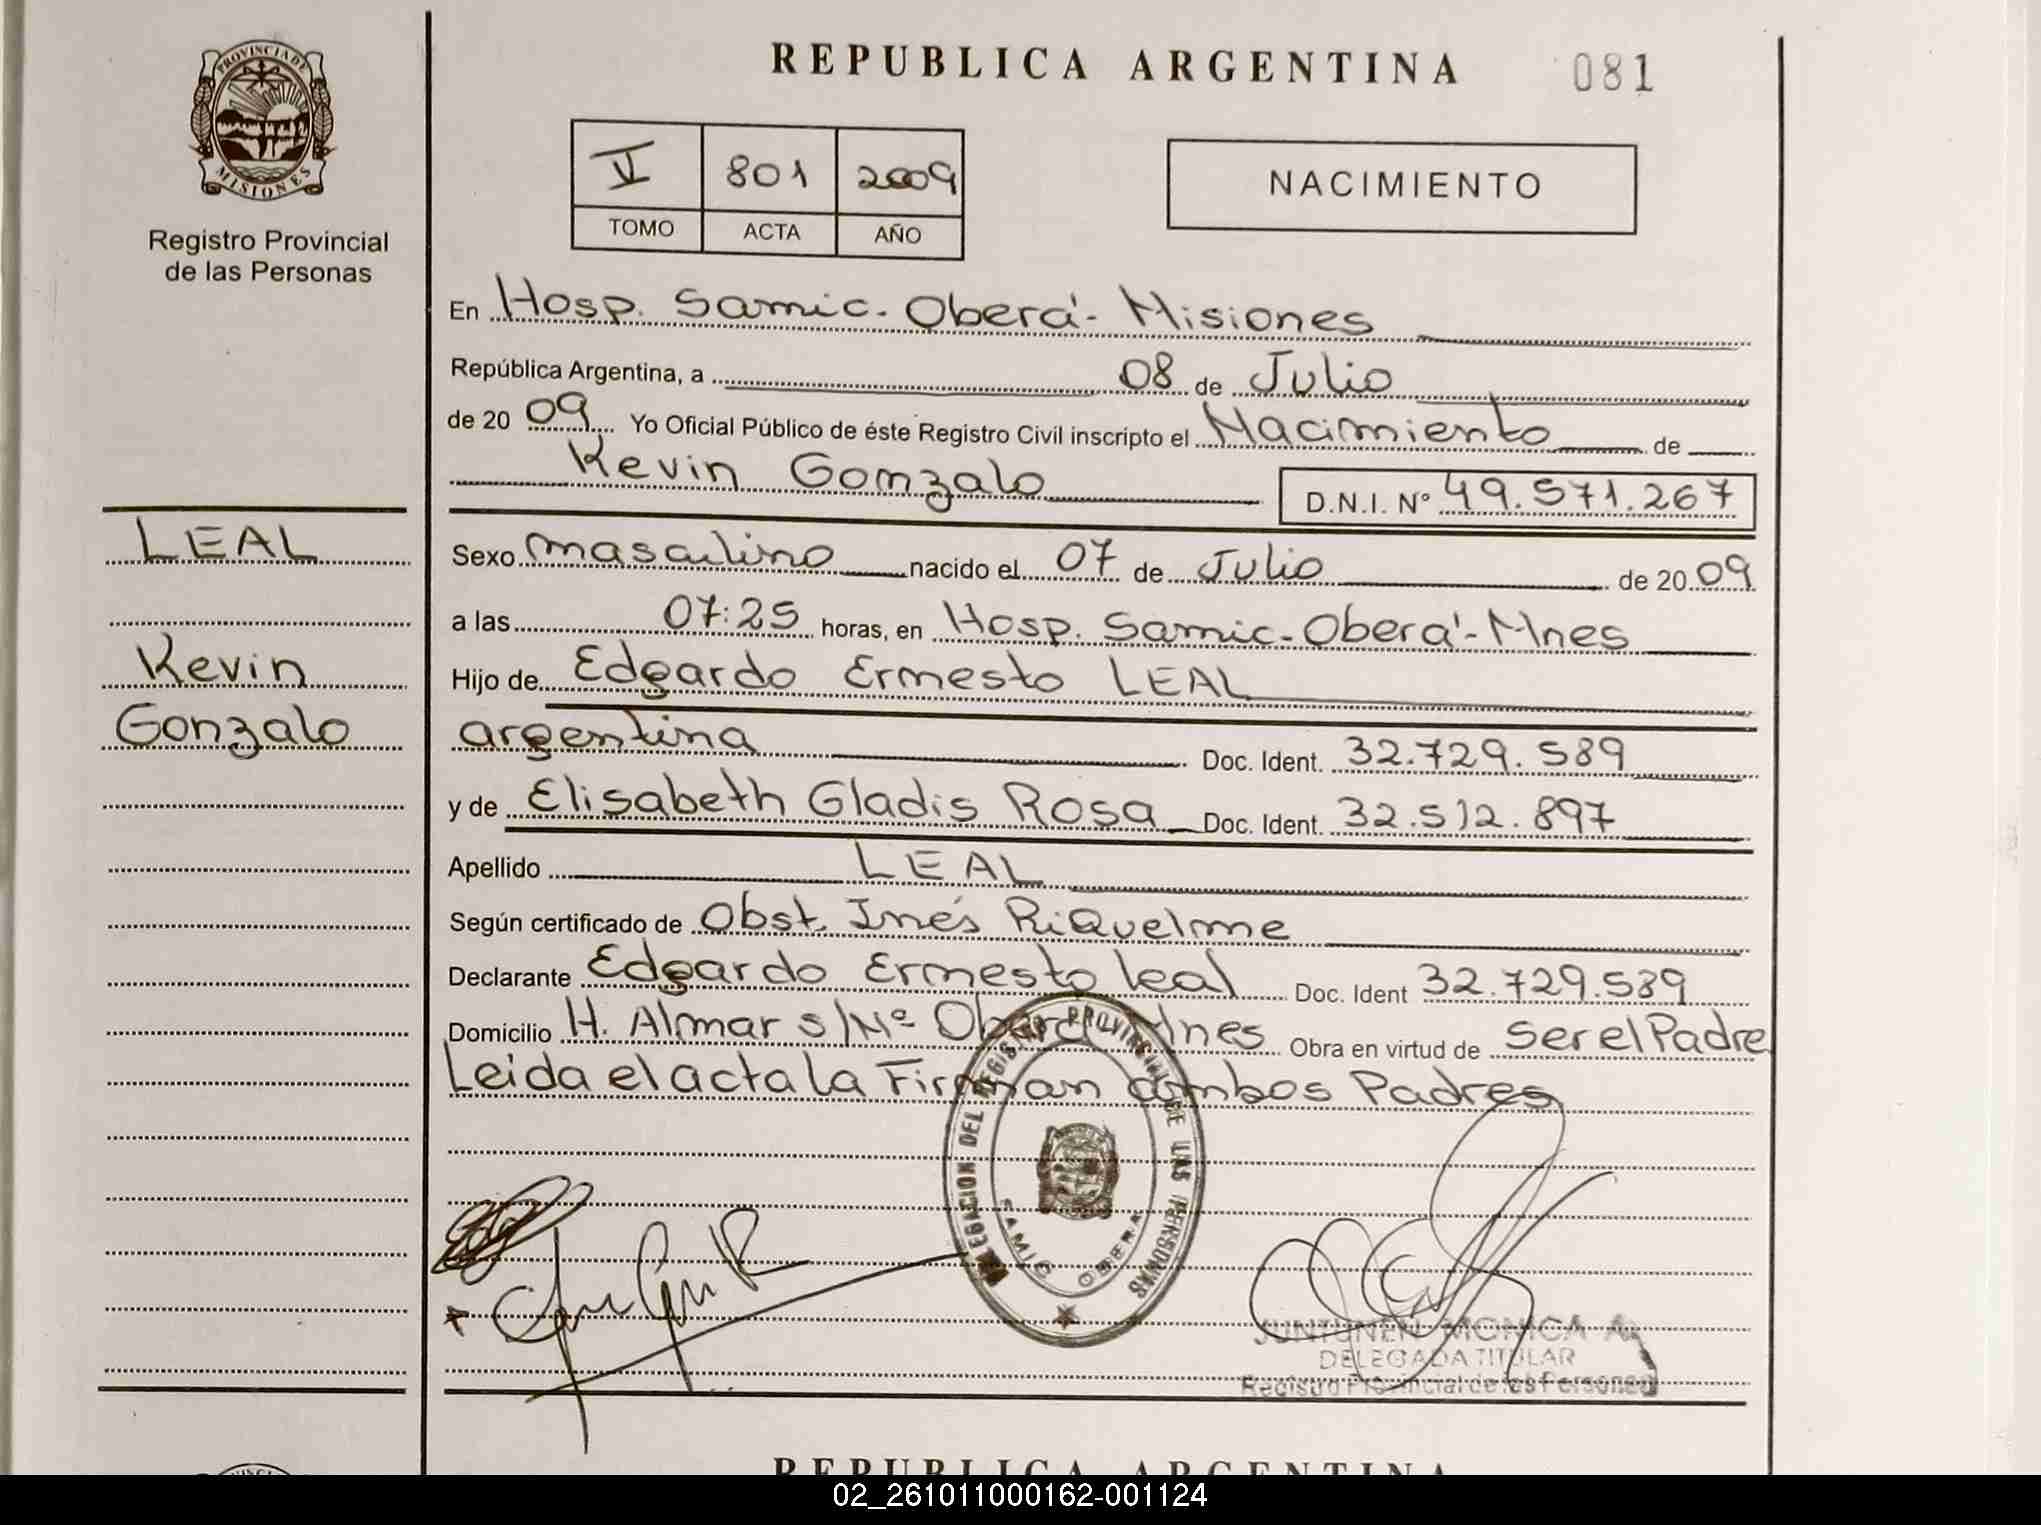 PROVINCIA DE
MISIONES
Registro Provincial
de las Personas
LEAL
Kevin
Gonzalo
REPUBLICA ARGENTINA 081
V 801 2009
TOMO ACTA AÑO
NACIMIENTO
En Hosp. Samic. Oberá - Misiones
República Argentina, a 08 de Julio
de 20 09 Yo Oficial Público de éste Registro Civil inscripto el Nacimiento de
Kevin Gonzalo D.N.I. Nº 49.571.267
Sexo masculino nacido el 07 de Julio de 20 09
a las 07:25 horas, en Hosp. Samic - Oberá - Mnes
Hijo de Edgardo Ernesto LEAL
argentina Doc. Ident. 32.729.589
y de Elisabeth Gladis Rosa Doc. Ident. 32.512.897
Apellido LEAL
Según certificado de Obst. Inés Riquelme
Declarante Edgardo Ernesto Leal Doc. Ident 32.729.589
Domicilio H. Almar s/Nº Oberá Mnes Obra en virtud de Ser el Padre
Leida el acta la Firman ambos Padres
DELEGACION DEL REGISTRO PROVINCIAL DE LAS PERSONAS
SAMIC OBERA
JUNTUNEN MONICA A.
DELEGADA TITULAR
Registro Provincial de las Personas
REPUBLICA ARGENTINA
02_261011000162-001124